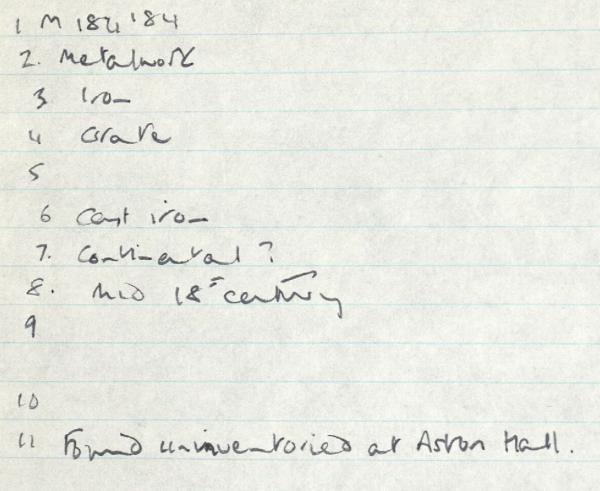 1 M 184'84
2. Metalwork
3 Iron
4 Grate
5
6 Cast iron
7. Continental ?
8. Mid 18th century
9
10
11 Found uninventoried at Aston Hall.